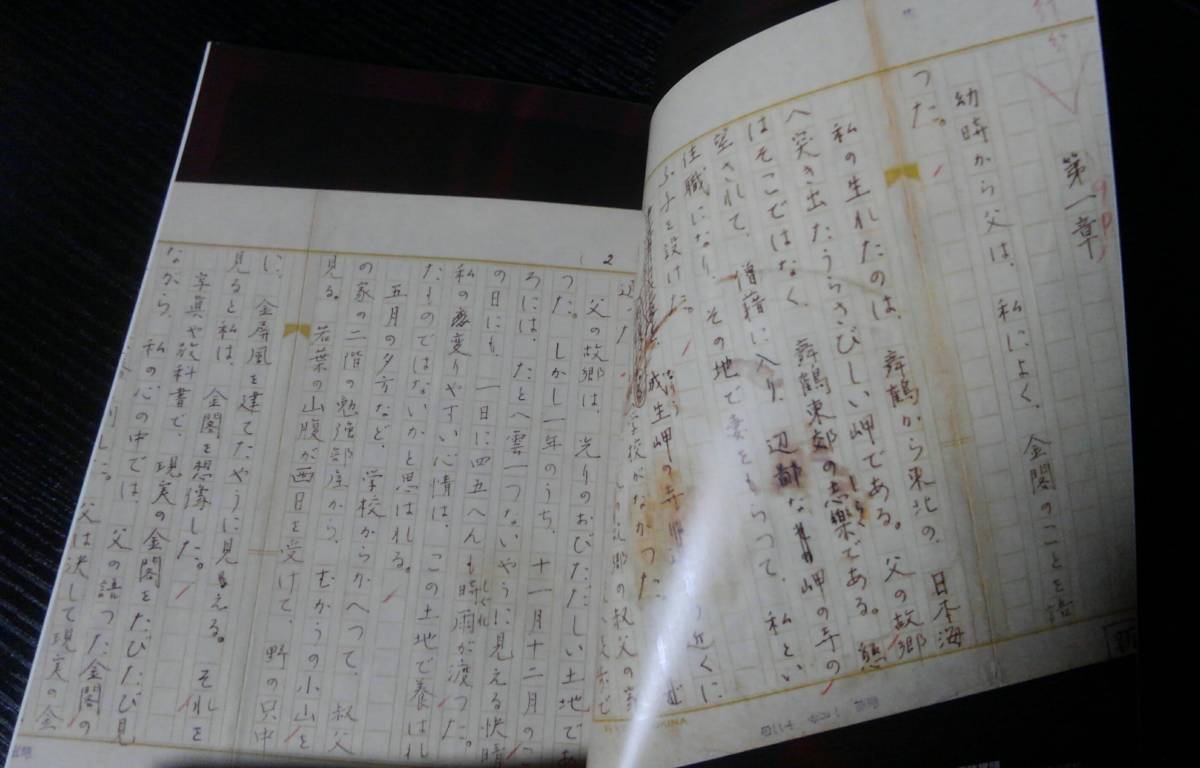 第一章
幼時から父は、私によく、金閣のことを語
つた。
私の生れたのは、舞鶴から東北の、日本海
へ突き出たうらさびしい岬である。父の故郷
はそこではなく、舞鶴東郊の志樂である。懇
望されて、僧籍に入り、辺鄙な岬の寺の
住職になり、その地で妻をもらつて、私とい
ふ子を設けた。
成生岬の寺の近くに
学校がなかつた。
故郷の叔父の家
2
父の故郷は、光りのおびただしい土地であ
つた。しかし一年のうち、十一月十二月のこ
ろには、たとへ雲一つないやうに見える快晴
の日にも、一日に四五へんも時雨が渡つた。
私の変りやすい心情は、この土地で養はれ
たものではないかと思はれる。
五月の夕方など、学校からかへつて、叔父
の家の二階の勉強部屋から、むかうの小山を
見る。若葉の山腹が西日を受けて、野の只中
に、金屏風を建てたやうに見える。それを
見ると私は、金閣を想像した。
写真や教科書で、現実の金閣をたびたび見
ながら、私の心の中では、父の語つた金閣の
父は決して現実の金